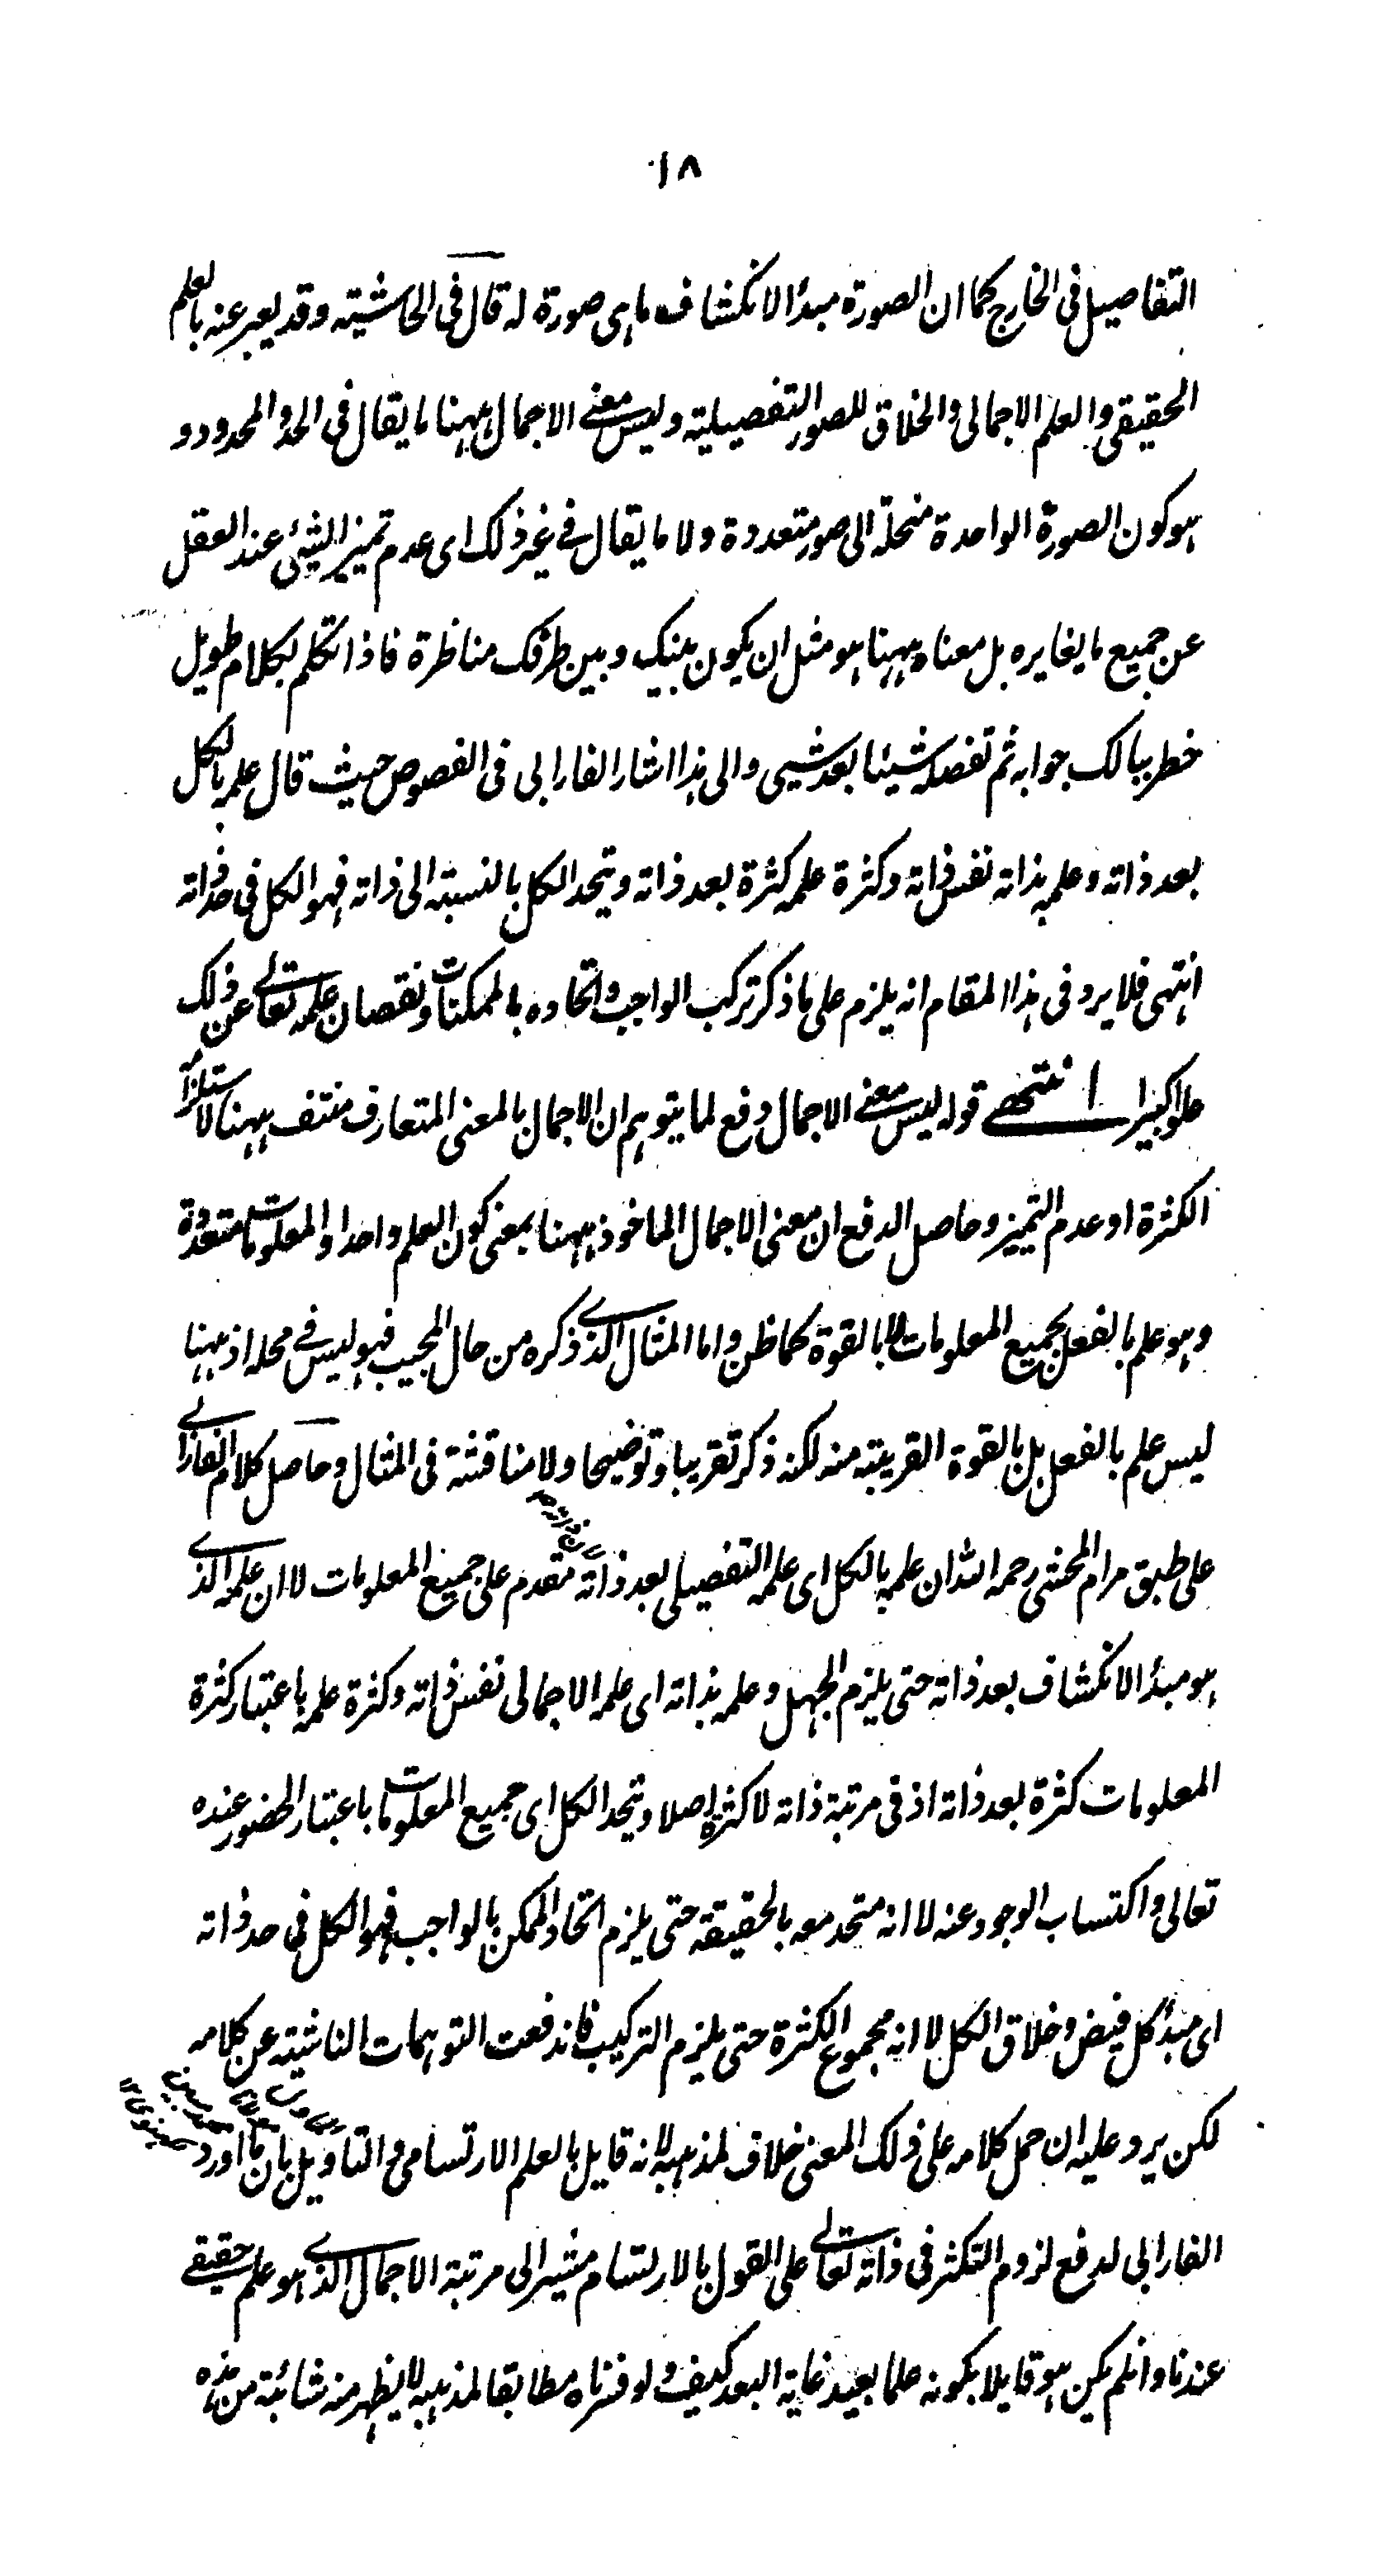 ١٨
التفاصيل فى الخارج كما ان الصورة مبدأ الانكشاف ماهى صورة له قال فى الحاشية وقد يعبر عنه بالعلم
الحقيقى والعلم الاجمالى والخلاق للصور التفصيلية وليس معنے الاجمال ههنا ما يقال فى الحد والمحدود و
هو كون الصورة الواحدة منحلة الى صور متعددة ولا ما يقال فے غير ذلك اى عدم تميز الشيئ عند العقل
عن جميع ما يغايره بل معناه ههنا هو مثل ان يكون بينك وبين طرفك مناظرة فاذا تكلم بكلام طويل
خطر ببالك جوابه ثم تفصله شيئا بعد شيى والى هذا اشار الفارابى فى الفصوص حيث قال علمه بالكل
بعد ذاته وعلمه بذاته نفس ذاته وكثرة علمه كثرة بعد ذاته ويتحد الكل بالنسبة الى ذاته فهو الكل فى حد ذاته
انتهى فلا يرد فى هذا المقام انه يلزم على ما ذكر تركب الواجب واتحاده بالممكنات ونقصان علمه تعالے عن ذلك
علوا كبيرا انتهے قوله ليس معنے الاجمال دفع لما يتوهم ان الاجمال بالمعنى المتعارف منتف ههنا لاستلزامه
الكثرة او عدم التميز وحاصل الدفع ان معنى الاجمال الماخوذ ههنا بمعنى كون العلم واحدا والمعلومات متعددة
وهو علم بالفعل بجميع المعلومات لا بالقوة كما ظن واما المثال الذے ذكره من حال المجيب فهو ليس فے محله اذ ههنا
ليس علم بالفعل بل بالقوة القريبة منه لكنه ذكر تقريبا وتوضيحا ولا مناقشة فى المثال وحاصل كلام الفارابے
على طبق مرام المحشى رحمه الله ان علمه بالكل اى علمه التفصيلى بعد ذاته متقدم على جميع المعلومات لا ان علمه الذے
هو مبدأ الانكشاف بعد ذاته حتى يلزم الجهل وعلمه بذاته اى علمه الاجمالى نفس ذاته وكثرة علمه باعتبار كثرة
المعلومات كثرة بعد ذاته اذ فى مرتبة ذاته لا كثرة اصلا ويتحد الكل اى جميع المعلومات باعتبار الحضور عنده
تعالى واكتساب الوجود عنه لا انه متحد معه بالحقيقة حتى يلزم اتحاد الممكن بالواجب فهو الكل فى حد ذاته
اى مبدأ كل فيض وخلاق الكل لا انه مجموع الكثرة حتى يلزم التركيب فاندفعت التوهمات الناشية عن كلامه
لكن يرد عليه ان حمل كلامه على ذلك المعنى خلاف لمذهبه لانه قايل بالعلم الارتسامى والتاويل بان ما اورد
الفارابى لدفع لزوم التكثر فى ذاته تعالے على القول بالارتسام مشير الى مرتبة الاجمال الذے هو علم حقيقے
عندنا وان لم يكن هو قايلا بكونه علما بعيد غاية البعد كيف ولو فسرناه مطابقا لمذهبه لا يظهر منه شائبة من هذه